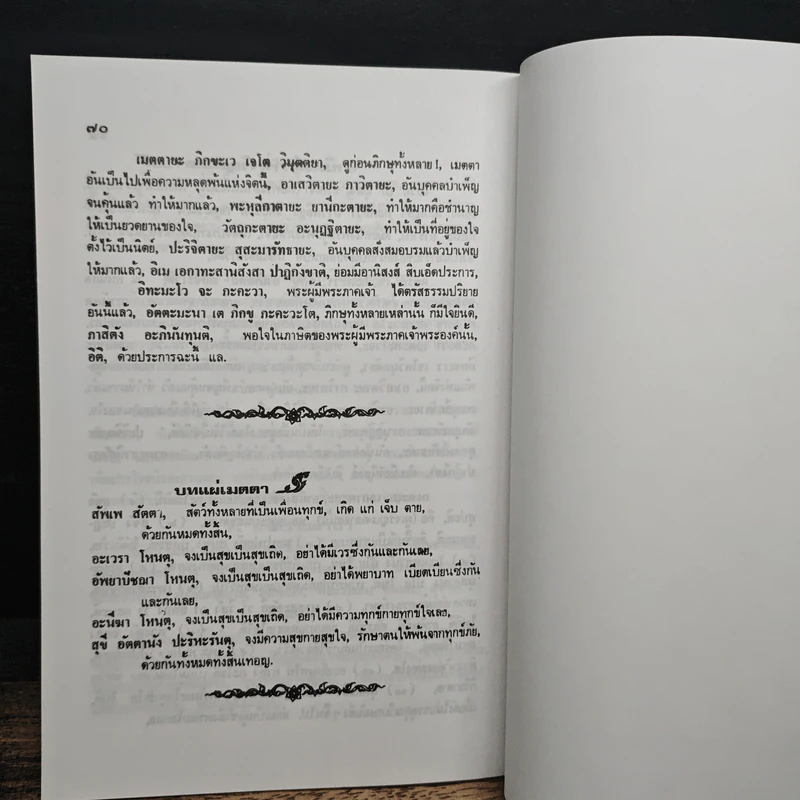 ๗๐
เมตตายะ ภิกขะเว เจโต วิมุตติยา, ดูก่อนภิกษุทั้งหลาย!, เมตตา
อันเป็นไปเพื่อความหลุดพ้นแห่งจิตนี้, อาเสวิตายะ ภาวิตายะ, อันบุคคลบำเพ็ญ
จนคุ้นแล้ว ทำให้มากแล้ว, พะหุลีกาตายะ ยานีกะตายะ, ทำให้มากคือชำนาญ
ให้เป็นยวดยานของใจ, วัตถุกะตายะ อะนุฏฐิตายะ, ทำให้เป็นที่อยู่ของใจ
ตั้งไว้เป็นนิตย์, ปะริจิตายะ สุสะมารัทธายะ, อันบุคคลสั่งสมอบรมแล้วบำเพ็ญ
ให้มากแล้ว, อิเม เอกาทะสานิสังสา ปาฏิกังขาติ, ย่อมมีอานิสงส์ สิบเอ็ดประการ,
อิทะมะโว จะ ภะคะวา, พระผู้มีพระภาคเจ้า ได้ตรัสธรรมปริยาย
อันนี้แล้ว, อัตตะมะนา เต ภิกขู ภะคะวะโต, ภิกษุทั้งหลายเหล่านั้น ก็มีใจยินดี,
ภาสิตัง อะภินันทุนติ, พอใจในภาษิตของพระผู้มีพระภาคเจ้าพระองค์นั้น,
อิติ, ด้วยประการฉะนี้ แล.
บทแผ่เมตตา
สัพเพ สัตตา, สัตว์ทั้งหลายที่เป็นเพื่อนทุกข์, เกิด แก่ เจ็บ ตาย,
ด้วยกันหมดทั้งสิ้น,
อะเวรา โหนตุ, จงเป็นสุขเป็นสุขเถิด, อย่าได้มีเวรซึ่งกันและกันเลย,
อัพยาปัชฌา โหนตุ, จงเป็นสุขเป็นสุขเถิด, อย่าได้พยาบาท เบียดเบียนซึ่งกัน
และกันเลย,
อะนีฆา โหนตุ, จงเป็นสุขเป็นสุขเถิด, อย่าได้มีความทุกข์กายทุกข์ใจเลย,
สุขี อัตตานัง ปะริหะรันตุ, จงมีความสุขกายสุขใจ, รักษาตนให้พ้นจากทุกข์ภัย,
ด้วยกันทั้งหมดทั้งสิ้นเทอญ.